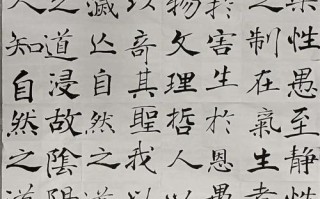 樂性愚至靜性
之制在氣生者
於害生於恩愚
物文理哲人以
以奇其聖我以
滅亾自然之道
之道浸故陰陽
人知自然之道